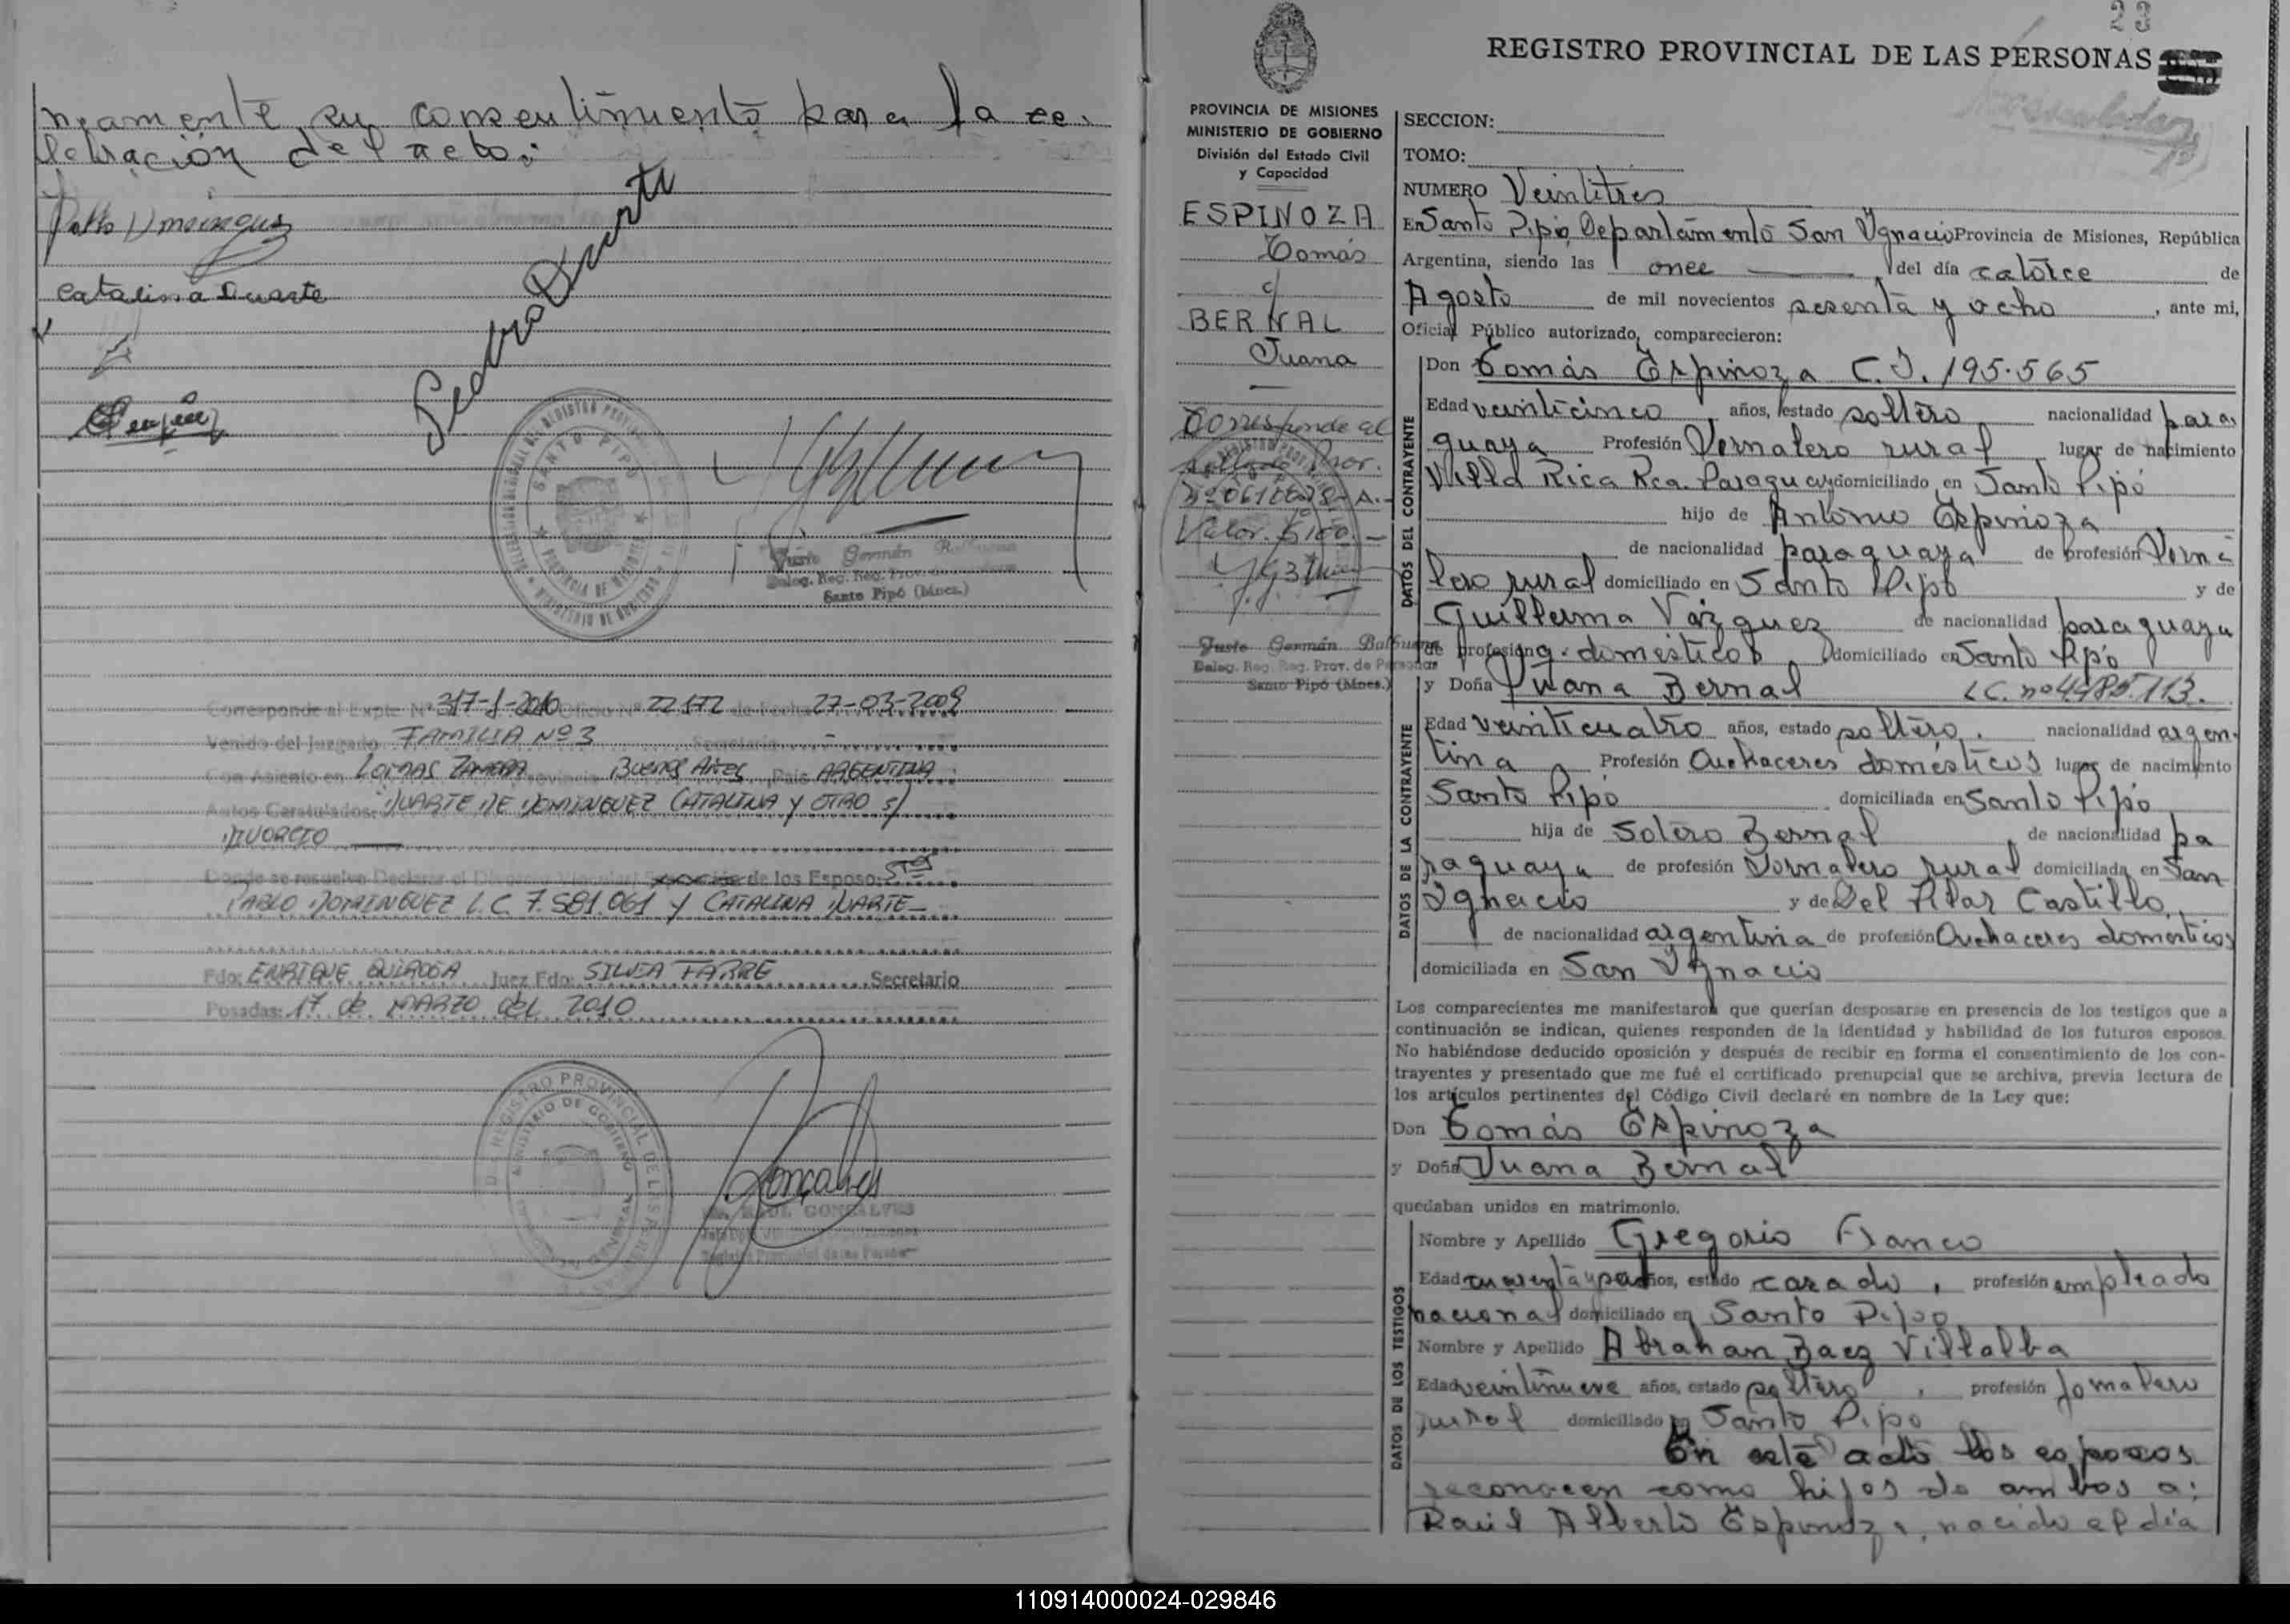 neamente su consentimiento para la ce-
lebración del acto.-
Pablo Dominguez
Catalina Duarte
Pedro Duarte
SANTO PIPÓ
PROVINCIA DE MISIONES
Justo Germán Balbuena
Deleg. Reg. Reg. Prov. de Personas
Santo Pipó (Mnes.)
Corresponde al Expte. Nº 317-J-2010 Oficio Nº 22172 de Fecha 27-03-2009
Venido del Juzgado FAMILIA Nº 3 Secretaría -
Con Asiento en LOMAS ZAMORA Provincia BUENOS AIRES País ARGENTINA
Autos Caratulados: DUARTE DE DOMINGUEZ CATALINA Y OTRO s/
DIVORCIO
Donde se resuelve Declarar el Divorcio Vincular de los Esposos
PABLO DOMINGUEZ L.C. 7.581.061 Y CATALINA DUARTE
Fdo: ENRIQUE QUIROGA Juez Fdo: SILVIA FARRE Secretario
Posadas: 17 de MARZO del 2010
REGISTRO PROVINCIAL DE LAS PERSONAS
MINISTERIO DE GOBIERNO
Goncalves
RAUL GONCALVES
Registro Provincial de las Personas
23
REGISTRO PROVINCIAL DE LAS PERSONAS
PROVINCIA DE MISIONES
MINISTERIO DE GOBIERNO
División del Estado Civil
y Capacidad
ESPINOZA
Tomás
c/
BERNAL
Juana
Corresponde al
sellado Prov.
A.-
Valor $ 100.-
Justo Germán Balbuena
Deleg. Reg. Reg. Prov. de Personas
Santo Pipó (Mnes.)
SECCION:
TOMO:
NUMERO Veintitres
En Santo Pipó, Departamento San Ygnacio Provincia de Misiones, República
Argentina, siendo las once del día catorce de
Agosto de mil novecientos sesenta y ocho, ante mi,
Oficial Público autorizado, comparecieron:
DATOS DEL CONTRAYENTE
Don Tomás Espinoza C.I. 195.565
Edad veinticinco años, estado soltero nacionalidad para
guaya Profesión Jornalero rural lugar de nacimiento
Villa Rica Rca. Paraguay domiciliado en Santo Pipó
hijo de Antonio Espinoza
de nacionalidad paraguaya de profesión Jorna
lero rural domiciliado en Santo Pipó y de
Guillerma Vázquez de nacionalidad paraguaya
de profesión q. domesticos domiciliado en Santo Pipó
y Doña Juana Bernal L.C. nº 4485.113.
DATOS DE LA CONTRAYENTE
Edad veinticuatro años, estado soltero. nacionalidad argen-
tina Profesión Quehaceres domésticos lugar de nacimiento
Santo Pipó domiciliada en Santo Pipó
hija de Sotero Bernal de nacionalidad pa
raguaya de profesión Jornalero rural domiciliada en San
Ygnacio y de Del Pilar Castillo,
de nacionalidad argentina de profesión Quehaceres domesticos
domiciliada en San Ygnacio
Los comparecientes me manifestaron que querían desposarse en presencia de los testigos que a
continuación se indican, quienes responden de la identidad y habilidad de los futuros esposos.
No habiéndose deducido oposición y después de recibir en forma el consentimiento de los con-
trayentes y presentado que me fué el certificado prenupcial que se archiva, previa lectura de
los artículos pertinentes del Código Civil declaré en nombre de la Ley que:
Don Tomás Espinoza
y Doña Juana Bernal
quedaban unidos en matrimonio.
DATOS DE LOS TESTIGOS
Nombre y Apellido Gregorio Franco
Edad años, estado casado, profesión empleado
nacional domiciliado en Santo Pipó
Nombre y Apellido Abraham Baez Villalba
Edad veintinueve años, estado soltero, profesión Jornalero
rural domiciliado en Santo Pipó
En este acto los esposos
reconocen como hijos de ambos a:
Raúl Alberto Espinoza, nacido el día
110914000024-029846